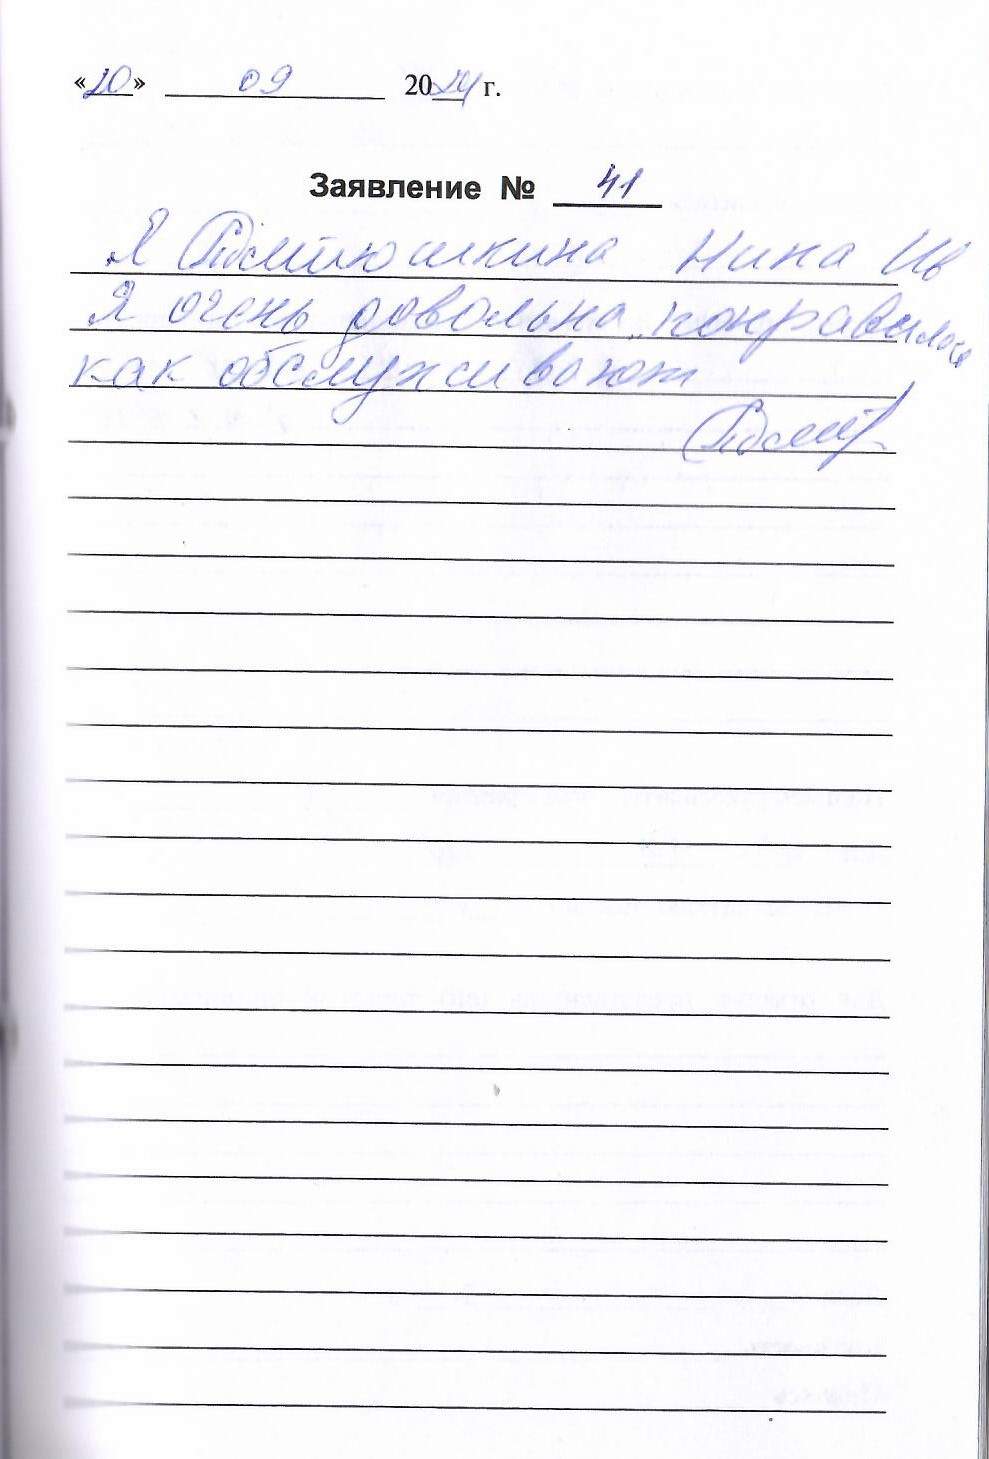 «20» 09 2024 г.
Заявление № 41
Я Нина Ив
Я очень довольна, понравилось
как обслуживают